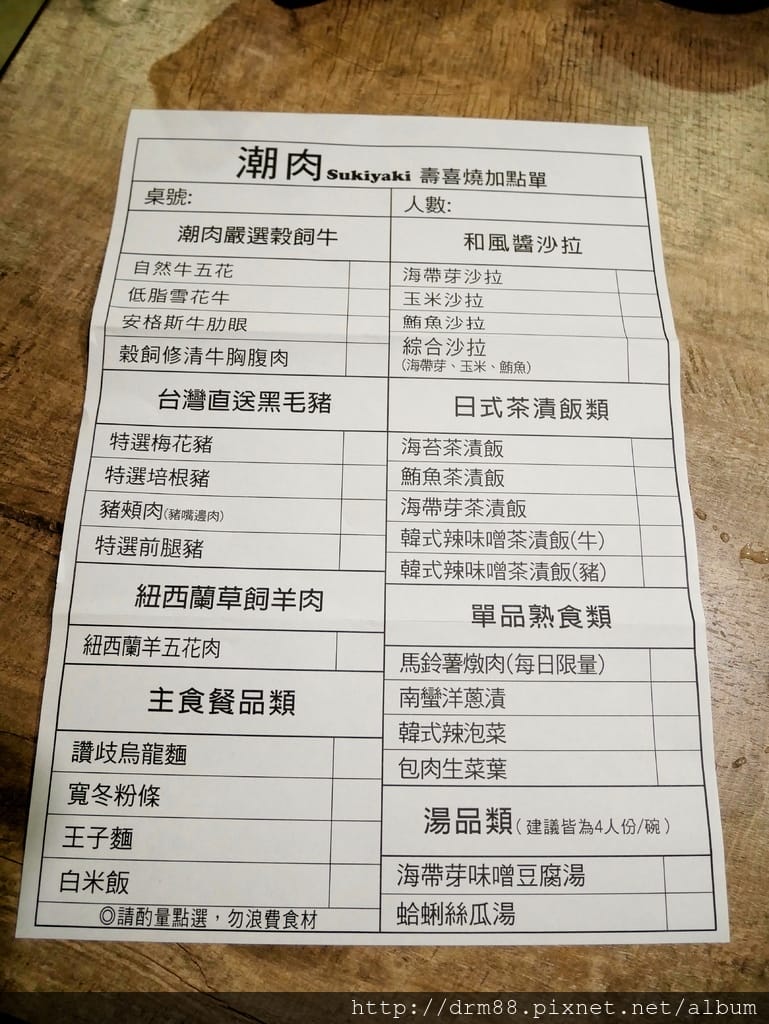 潮肉Sukiyaki 壽喜燒加點單
桌號:
人數:
潮肉嚴選穀飼牛
自然牛五花
低脂雪花牛
安格斯牛肋眼
穀飼修清牛胸腹肉
台灣直送黑毛豬
特選梅花豬
特選培根豬
豬頰肉(豬嘴邊肉)
特選前腿豬
紐西蘭草飼羊肉
紐西蘭羊五花肉
主食餐品類
讚歧烏龍麵
寬冬粉條
王子麵
白米飯
◎請酌量點選，勿浪費食材
和風醬沙拉
海帶芽沙拉
玉米沙拉
鮪魚沙拉
綜合沙拉
(海帶芽、玉米、鮪魚)
日式茶漬飯類
海苔茶漬飯
鮪魚茶漬飯
海帶芽茶漬飯
韓式辣味噌茶漬飯(牛)
韓式辣味噌茶漬飯(豬)
單品熟食類
馬鈴薯燉肉(每日限量)
南蠻洋蔥漬
韓式辣泡菜
包肉生菜葉
湯品類(建議皆為4人份/碗)
海帶芽味噌豆腐湯
蛤蜊絲瓜湯
http://drm88.pixnet.net/album